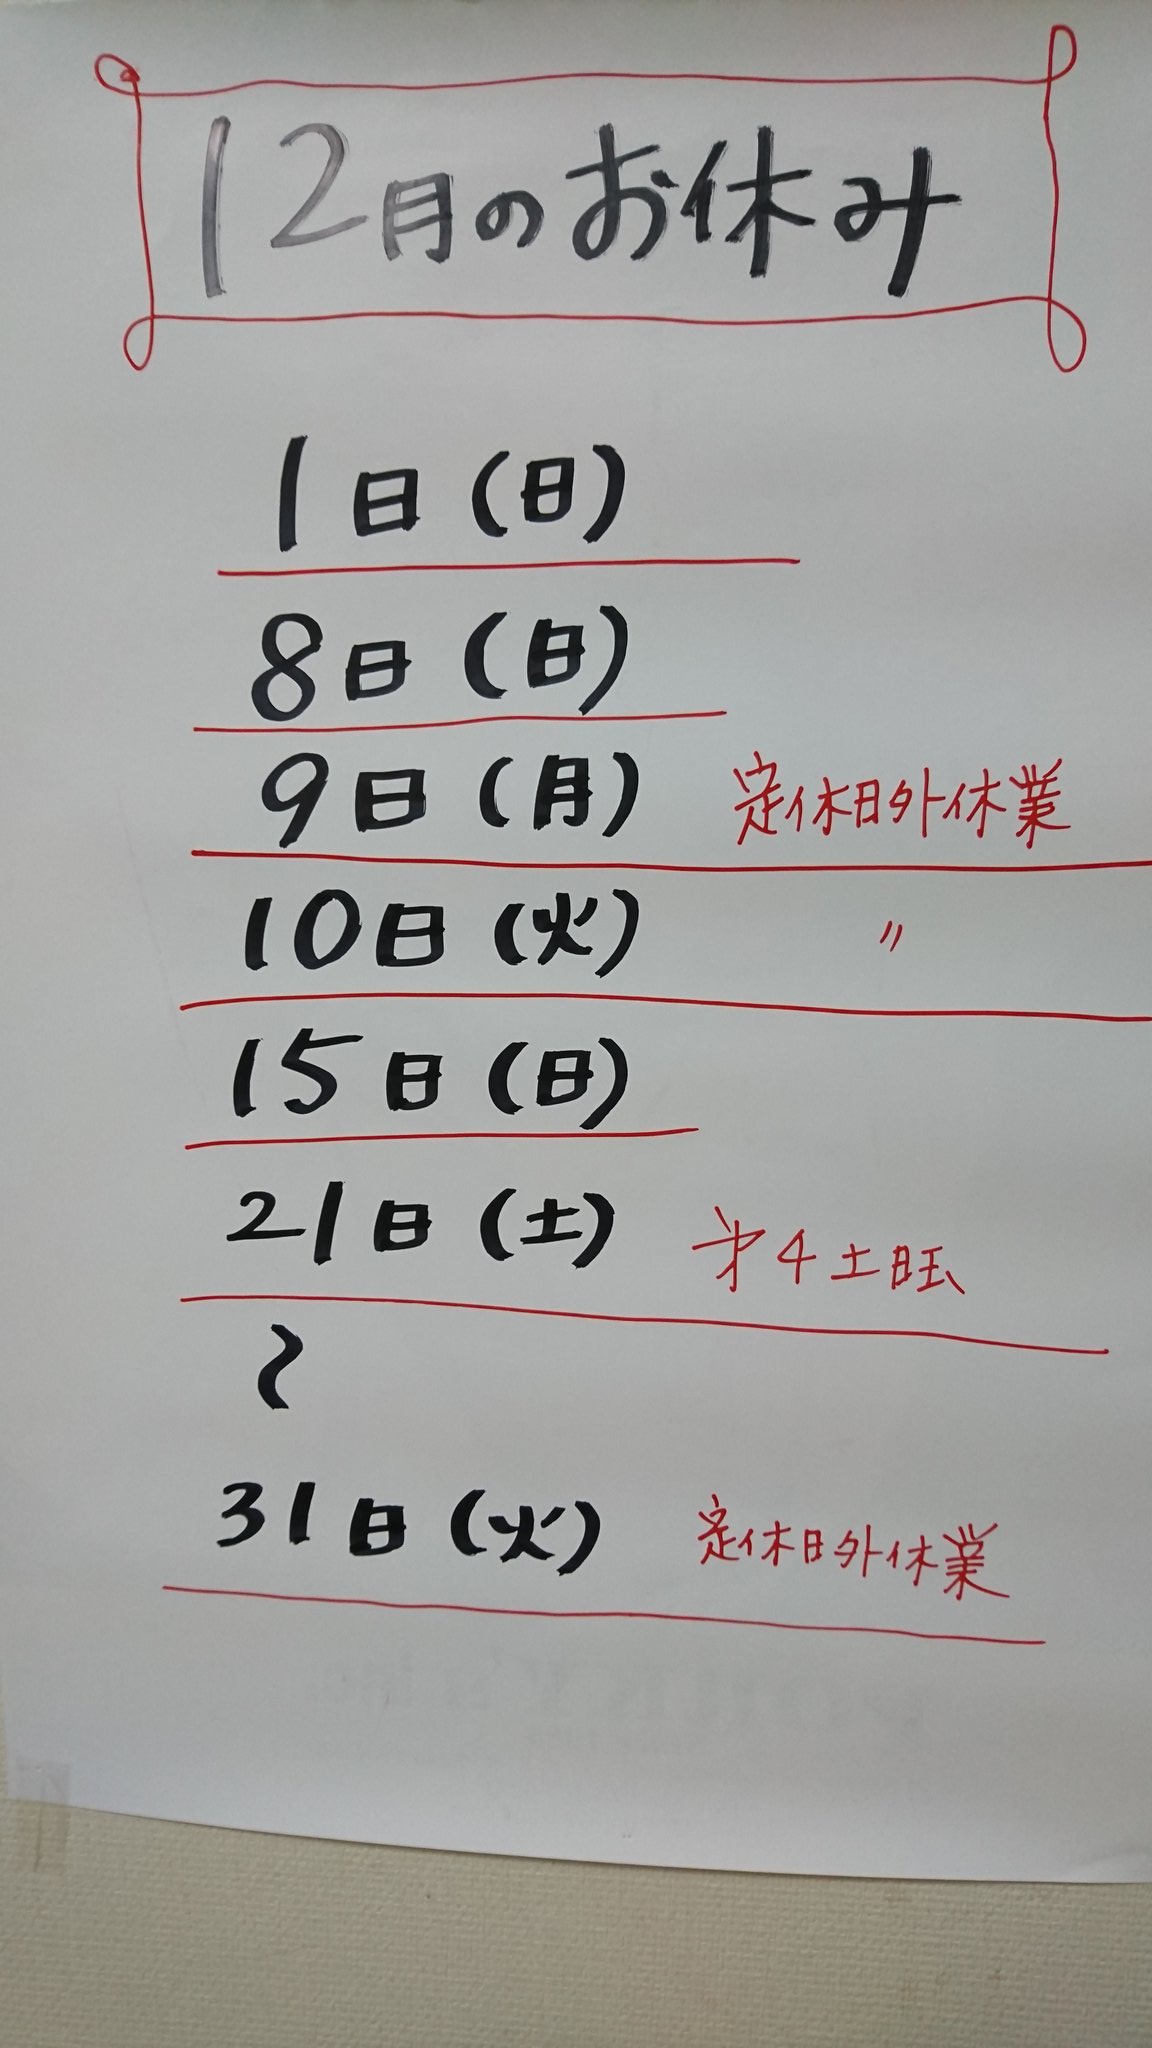 12月のお休み
1日(日)
8日(日)
9日(月) 定休日外休業
10日(火) 〃
15日(日)
21日(土) 第4土曜
〜
31日(火) 定休日外休業